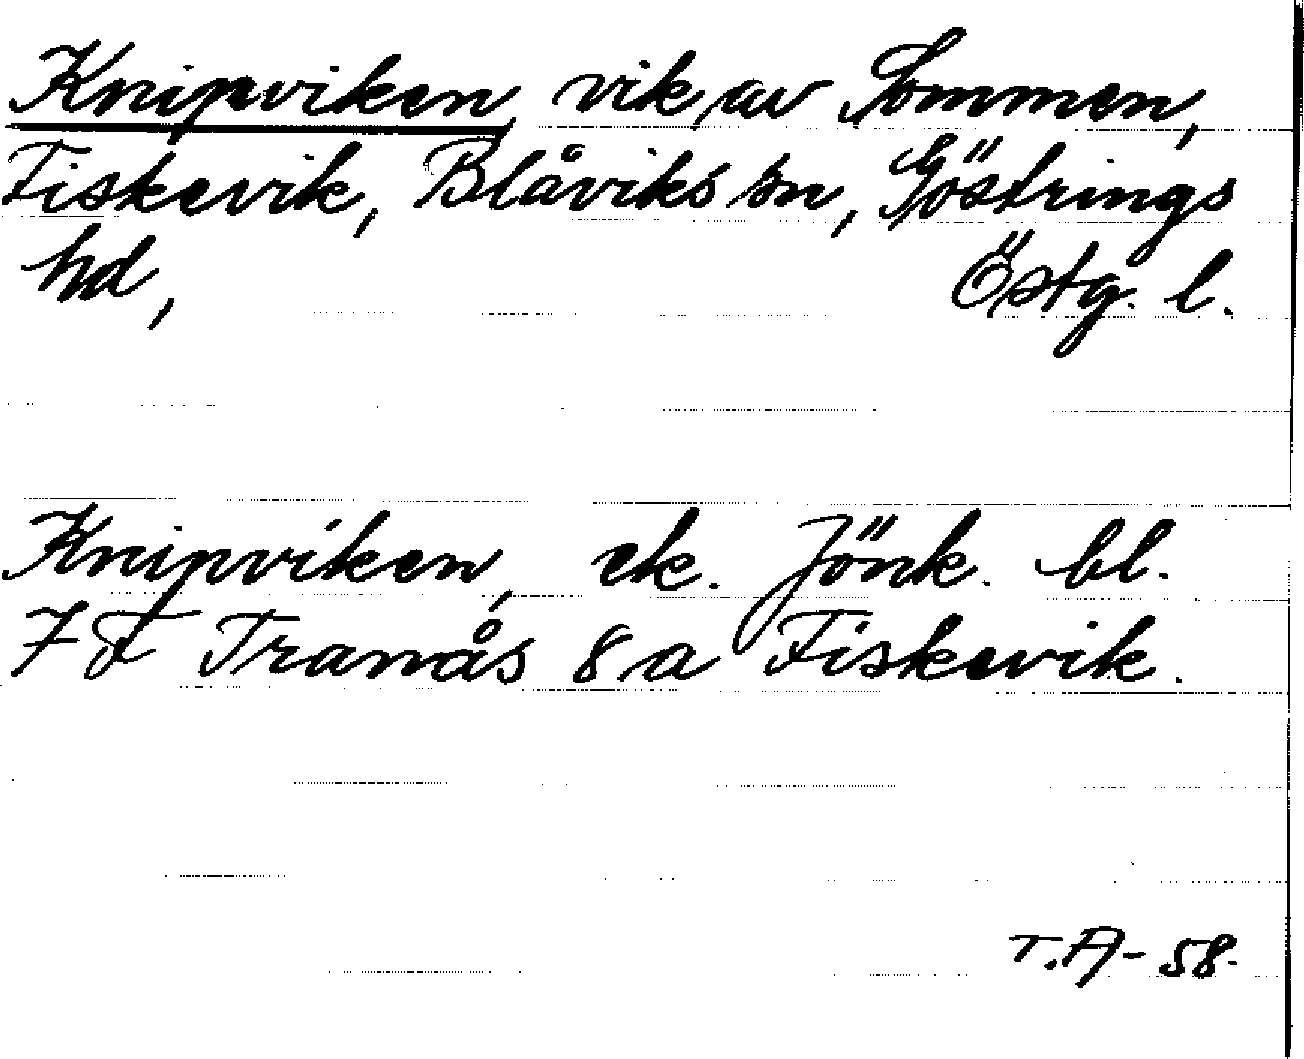 Knipviken, vik av Sommen,
Fiskevik, Blåviks sn, Göstrings
hd, Östg. l.
Knipviken, ek. Jönk. bl.
7 F Tranås 8 a Fiskevik.
T.A-58.